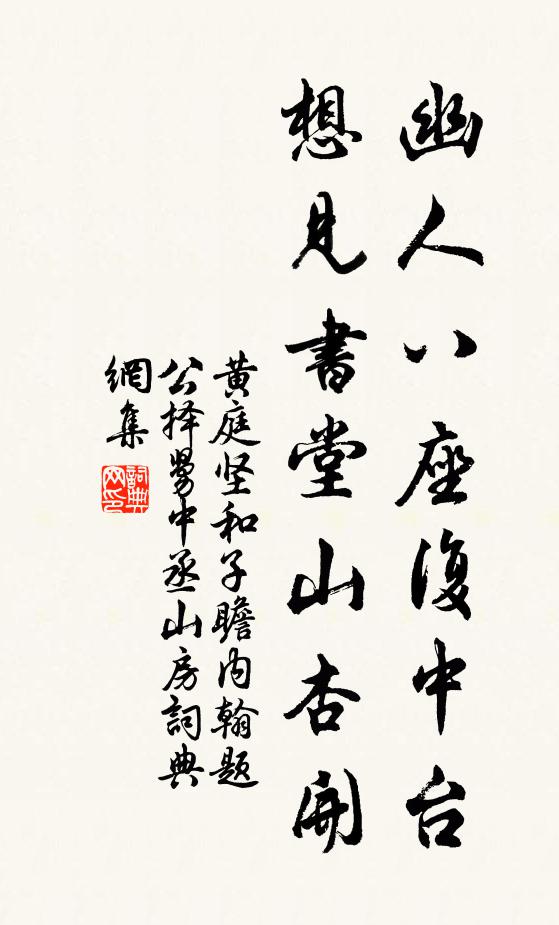 幽人八座復中台
想見書堂山杏開
黄庭坚和子瞻内翰題
公择舅中丞山房詞典
網集
詞典網印